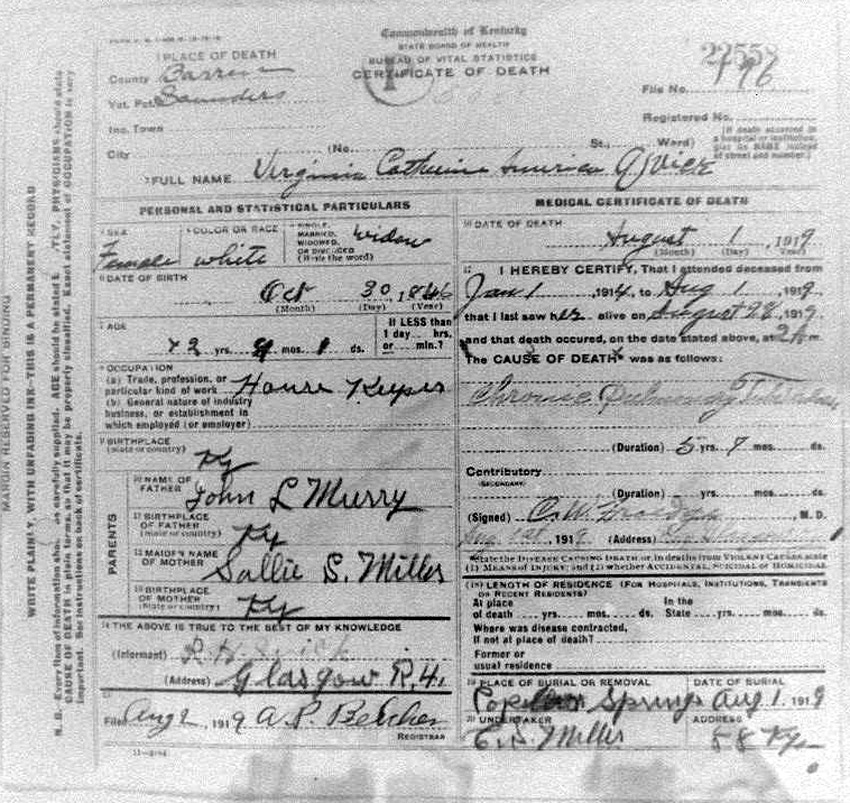 Commonwealth of Kentucky
STATE BOARD OF HEALTH
BUREAU OF VITAL STATISTICS
CERTIFICATE OF DEATH
22558
196
1 PLACE OF DEATH
County Barren
Vot. Pct. Saunders
Inc. Town
City (No. St., Ward)
File No.
Registered No.
(If death occurred in a hospital or institution, give its NAME instead of street and number.)
2 FULL NAME Virginia Catherine America
PERSONAL AND STATISTICAL PARTICULARS
3 SEX Female
4 COLOR OR RACE white
5 SINGLE, MARRIED, WIDOWED, OR DIVORCED (Write the word) Widow
6 DATE OF BIRTH
Oct 30, 1846
(Month) (Day) (Year)
7 AGE
72 yrs. 9 mos. 1 ds.
If LESS than 1 day .... hrs. or .... min.?
8 OCCUPATION
(a) Trade, profession, or particular kind of work House Keeper
(b) General nature of industry business, or establishment in which employed (or employer)
9 BIRTHPLACE
(State or country) Ky
PARENTS
10 NAME OF FATHER John L Murry
11 BIRTHPLACE OF FATHER
(State or country) Ky
12 MAIDEN NAME OF MOTHER Sallie S. Miller
13 BIRTHPLACE OF MOTHER
(State or country) Ky
14 THE ABOVE IS TRUE TO THE BEST OF MY KNOWLEDGE
(Informant) R.H.
(Address) Glasgow R.4.
15
Filed Aug 2, 1919 A.P. Belcher
REGISTRAR
11-3184
MEDICAL CERTIFICATE OF DEATH
16 DATE OF DEATH
August 1 1919
(Month) (Day) (Year)
17 I HEREBY CERTIFY, That I attended deceased from
Jan 1, 1914, to Aug 1, 1919
that I last saw her alive on August 1919,
and that death occured, on the date stated above, at m.
The CAUSE OF DEATH* was as follows:
Chronic Pulmonary
(Duration) 5 yrs. 7 mos. ds.
Contributory
(SECONDARY)
(Duration) yrs. mos. ds.
(Signed) C.W. M. D.
Aug 1st, 1919 (Address)
*State the DISEASE CAUSING DEATH or, in deaths from VIOLENT CAUSES, state
(1) MEANS OF INJURY; and (2) whether ACCIDENTAL, SUICIDAL or HOMICIDAL
18 LENGTH OF RESIDENCE (FOR HOSPITALS, INSTITUTIONS, TRANSIENTS OR RECENT RESIDENTS)
At place of death .... yrs. .... mos. .... ds. In the State .... yrs. .... mos. .... ds.
Where was disease contracted, If not at place of death?
Former or usual residence
19 PLACE OF BURIAL OR REMOVAL DATE OF BURIAL
Springs Aug 1. 1919
20 UNDERTAKER ADDRESS
E.S. Miller Ky
MARGIN RESERVED FOR BINDING
WRITE PLAINLY, WITH UNFADING INK—THIS IS A PERMANENT RECORD
N. B. Every item of information should be carefully supplied. AGE should be stated EXACTLY. PHYSICIANS should state
CAUSE OF DEATH in plain terms, so that it may be properly classified. Exact statement of OCCUPATION is very
important. See instructions on back of certificate.